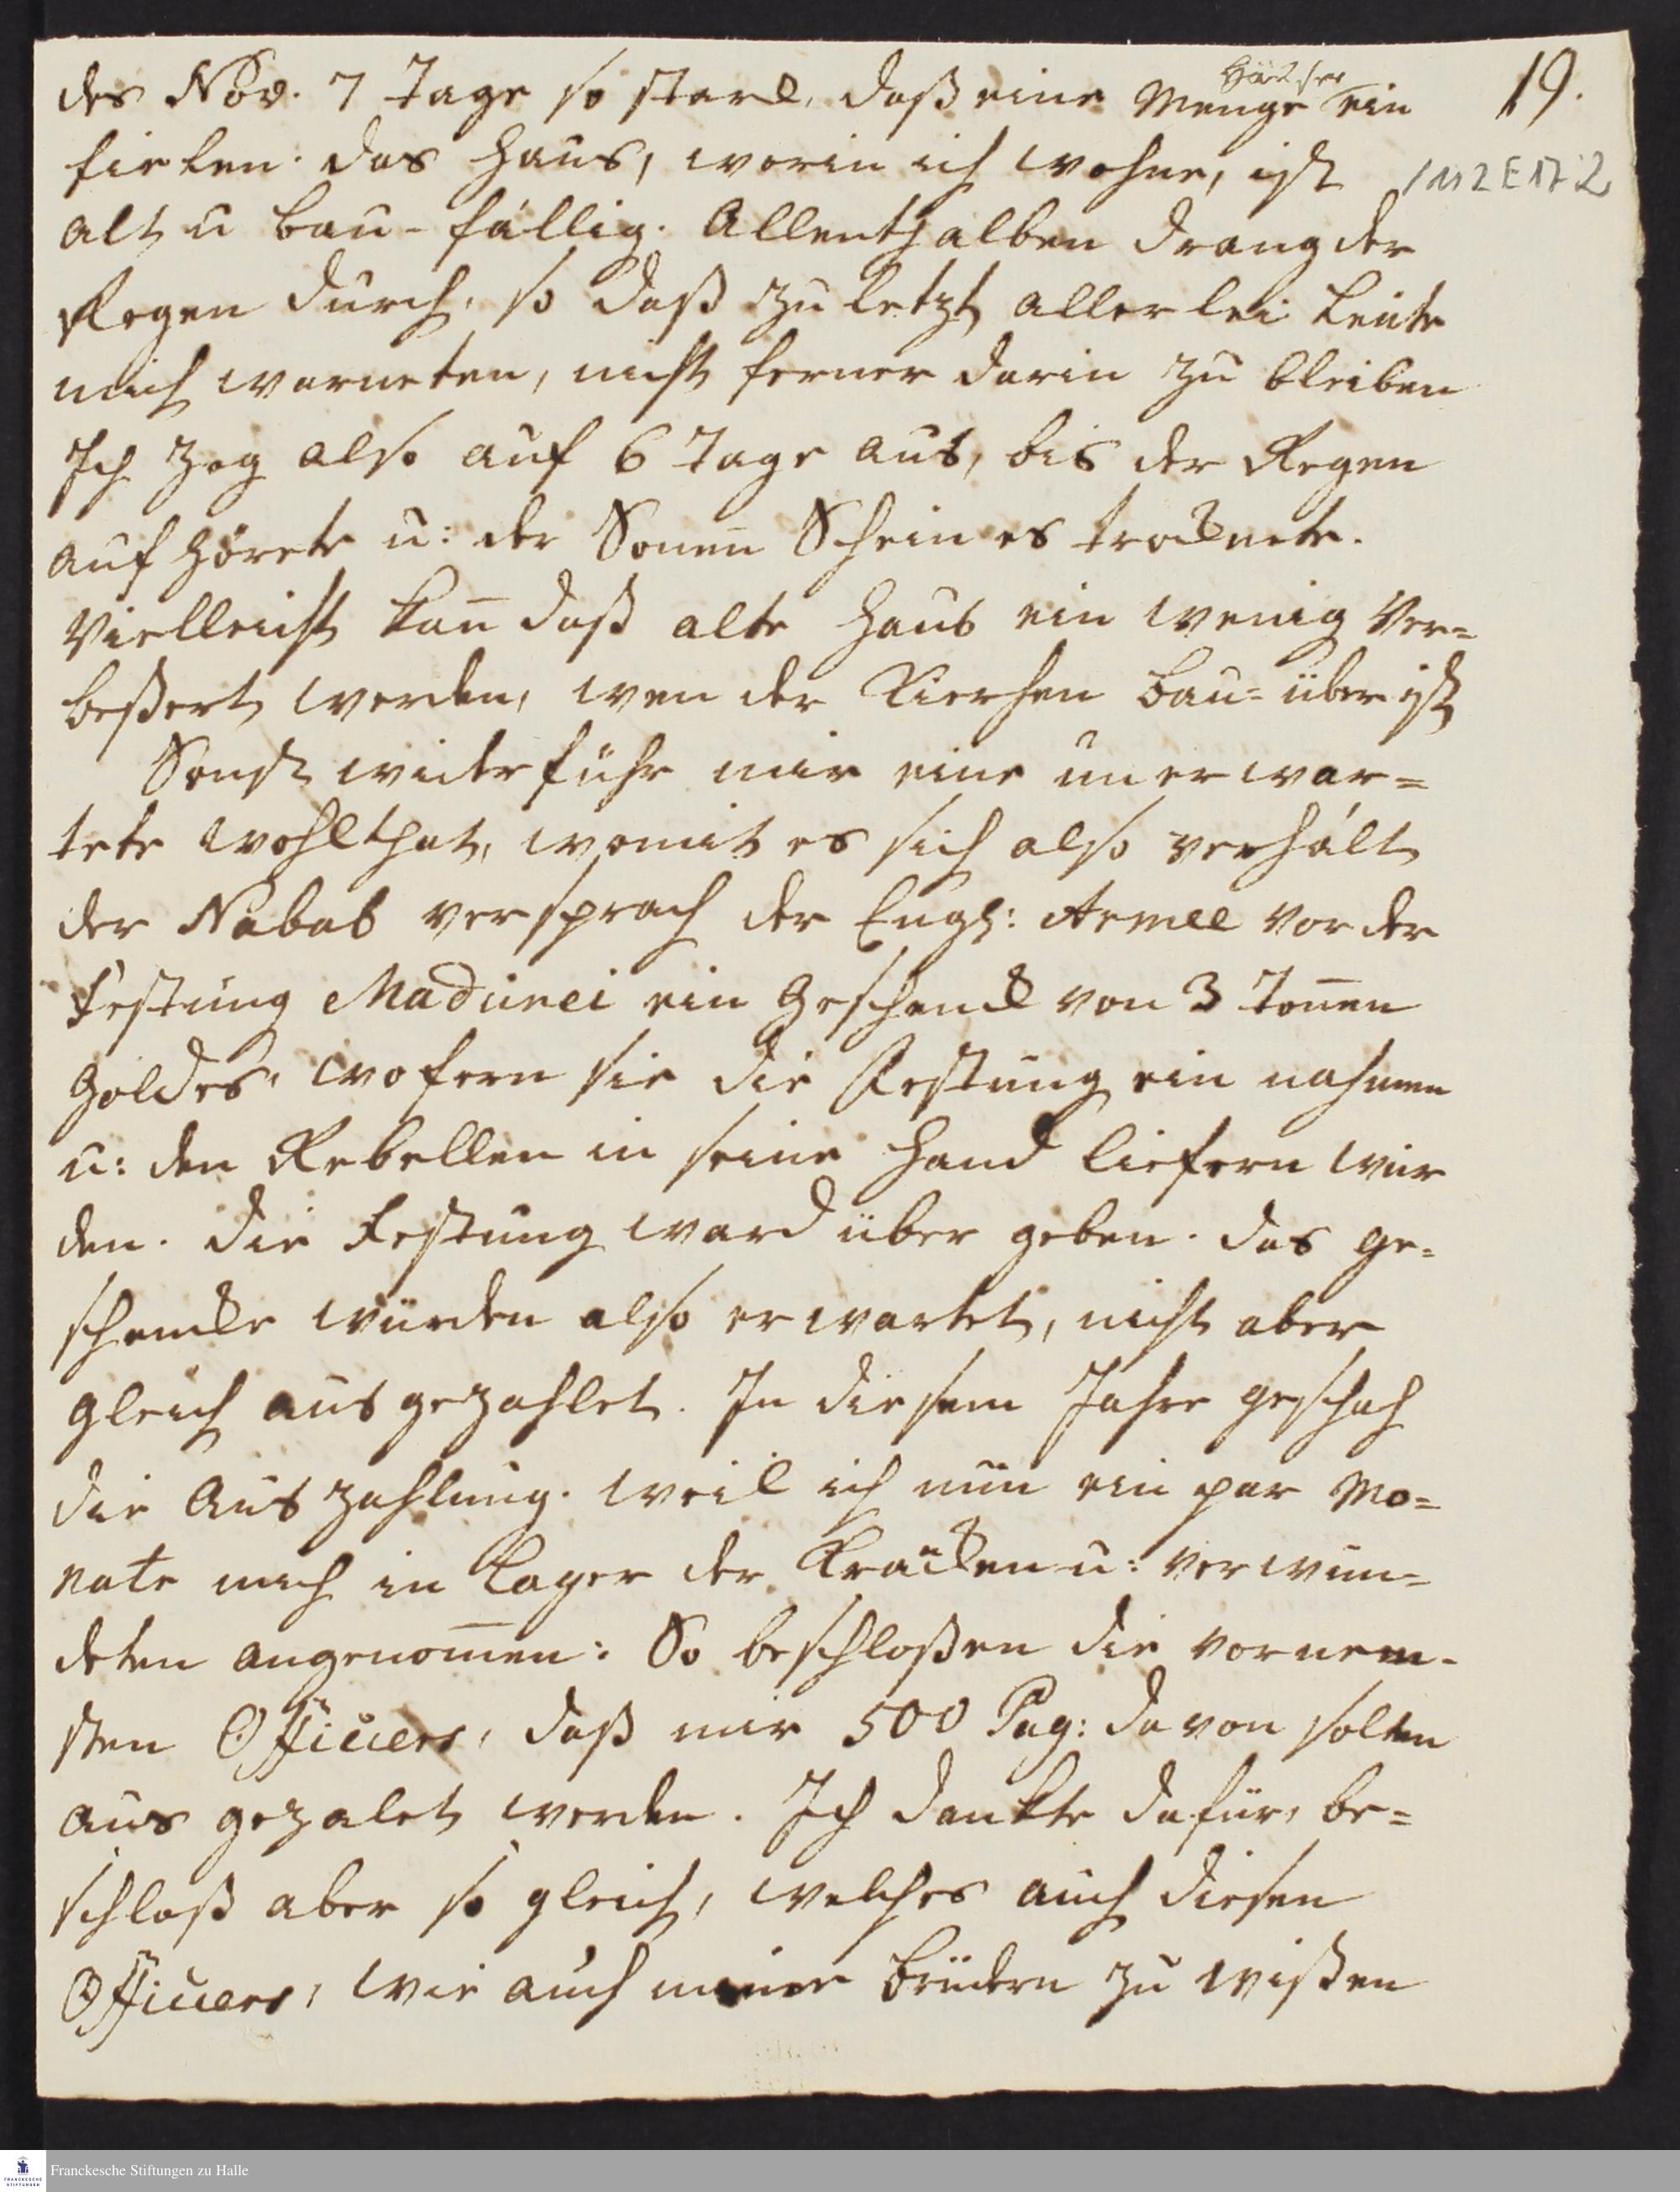 19.
1 II 2 E 17:2
des Nov. 7 Tage so starck, daß eine Menge Häuser ein
fielen. das Haus, worin ich wohne, ist
alt u bau-fällig. Allenthalben drang der
Regen durch, so daß zu letzt allerlei Leute
mich warneten, nicht ferner darin zu bleiben
Ich zog also auf 6 Tage aus, bis der Regen
auf hörete u: der Sonnen Schein es trocknete.
Vielleicht kan̄ daß alte Haus ein wenig Ver=
beßert werden, wen der Kirchen bau-über ist
Sonst widerfuhr mir eine unerwar=
tete wohlthat, womit es sich also verhält
der Nabab versprach der Engl: Armee vor der
Festung Madurei ein Geschenck von 3 Ton̄en
Goldes, wofern sie die Festung ein nahmen
u: den Rebellen in seine Hand liefern wür
den. die Festung ward über geben. das ge=
schencke wurden also erwartet, nicht aber
gleich aus gezahlet. In diesem Jahre geschah
die Aus zahlung. weil ich nun ein par Mo=
nate mich in Lager der Krancken u: verwun=
deten angenom̄en: So beschloßen die vornem=
sten Officiers, daß mir 500 Pag: davon solten
aus gezalet werden. Ich dankte dafür, be=
schloß aber so gleich, welches auch diesen
Officiers, wie auch meine brüdern zu wißen
Franckesche Stiftungen zu Halle